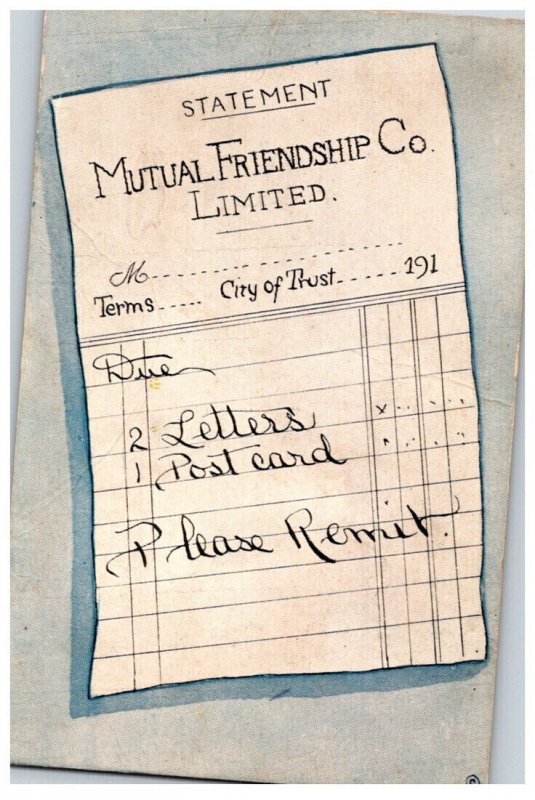 STATEMENT
MUTUAL FRIENDSHIP CO.
LIMITED.
M
Terms..... City of Trust...... 191
Due
2 Letters
1 Post card
Please Remit.
©